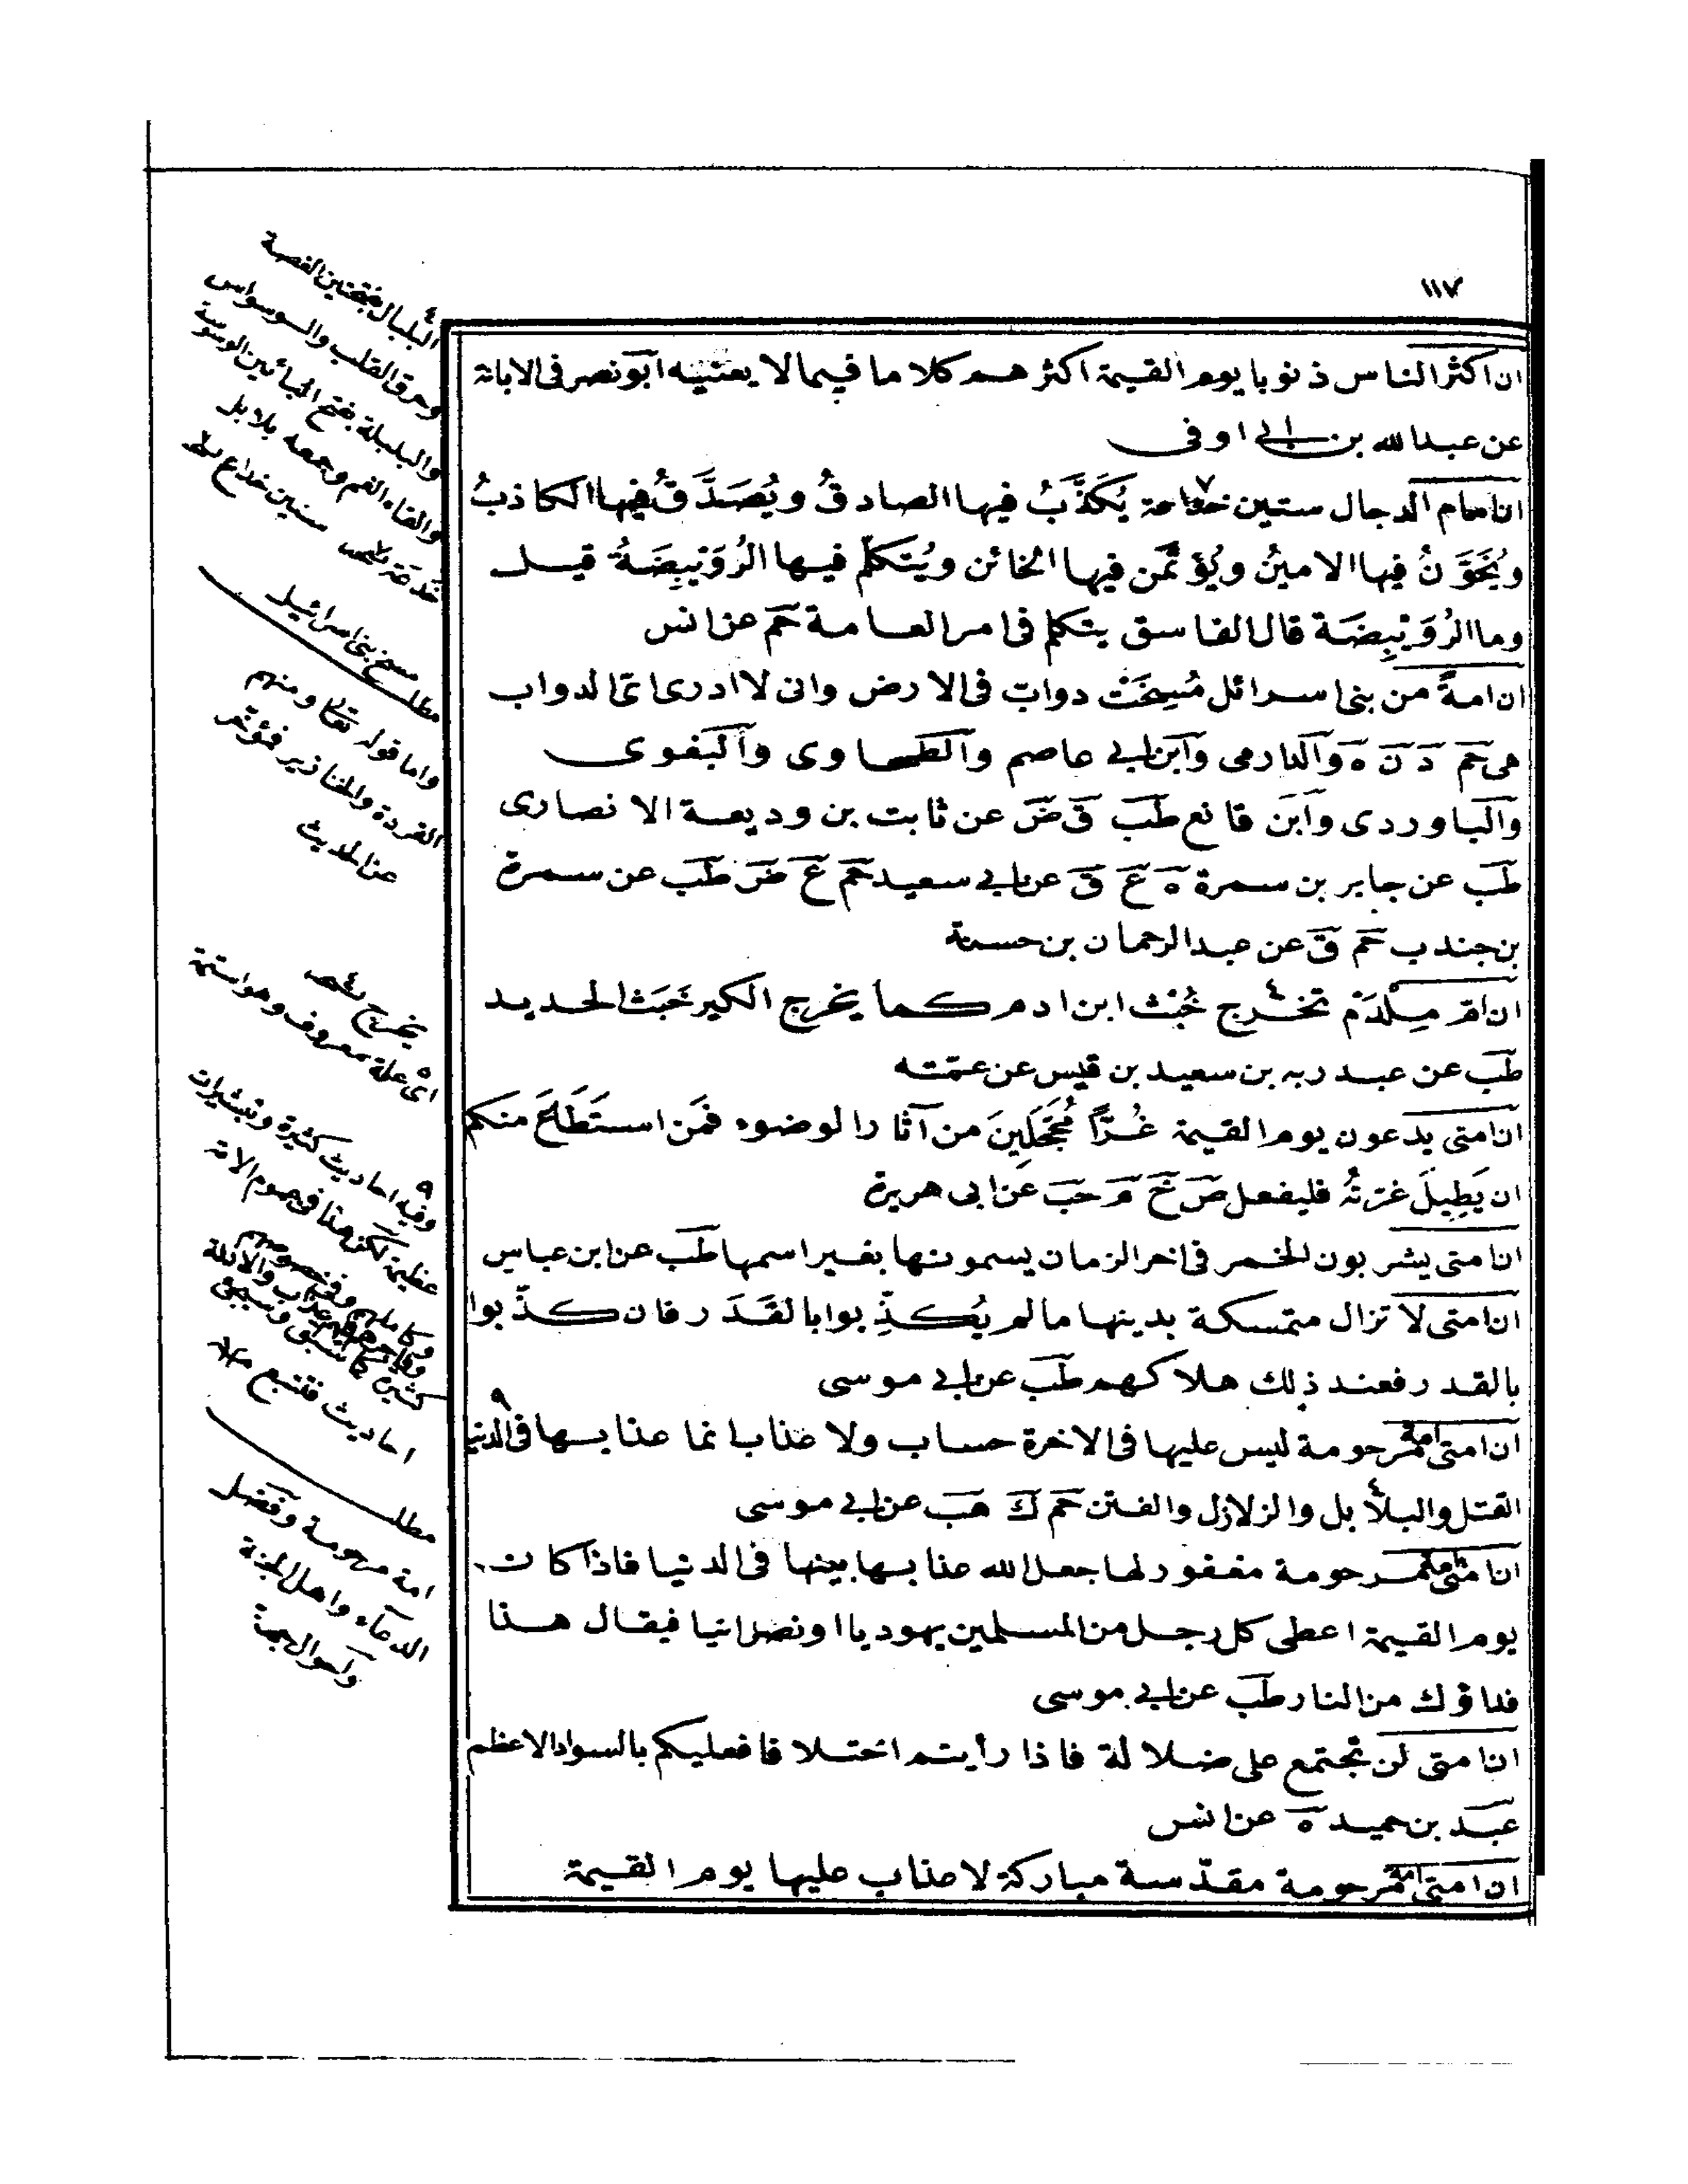 ١١٧
ان اكثر الناس ذنوبا يوم القيمة اكثرهم كلاما فيما لا يعنيه ابو نصر فى الابانة
عن عبدالله بن ابى اوفى
ان امام الدجال ستين خداعة يُكَذَّبُ فيها الصادقُ ويُصَدَّقُ فيها الكاذبُ
ويُخَوَّنُ فيها الامينُ ويُؤتَمَن فيها الخائن ويُتَكلّم فيها الرُوَيْبِضَةُ قيل
وما الرُوَيْبِضَة قال الفاسق يتكلم فى امر العامة حم عن انس
ان امةً من بنى اسرائل مُسِخَتْ دواب فى الارض وانى لا ادرى اىّ الدواب
هى حم د ن ه والدارمى وابن ابى عاصم والطحاوى والبغوى
والباوردى وابن قانع طب ق ض عن ثابت بن وديعة الانصارى
طب عن جابر بن سمرة ه ع ق عن ابى سعيد حم ع ض طب عن سمرة
بن جندب حم ق عن عبد الرحمان بن حسنة
ان ام مِلْدَمْ تخرج خُبْث ابن ادم كما يخرج الكير خَبَث الحديد
طب عن عبد ربه بن سعيد بن قيس عن عمته
ان امتى يدعون يوم القيمة غُرًّا مُحَجَّلِينَ من آثار الوضوء فمَن استَطَاعَ منكم
ان يَطِيلَ غرتهُ فليفعل ض خ م حب عن ابى هريرة
ان امتى يشربون الخمر فى اخر الزمان يسمونها بغير اسمها طب عن ابن عباس
ان امتى لا تزال متمسكة بدينها ما لم يُكذِّبوا بالقَدَر فان كذّبوا
بالقدر فعند ذلك هلاكهم طب عن ابى موسى
ان امتى امة مرحومة ليس عليها فى الاخرة حساب ولا عذاب انما عذابها فى الدنيا
القتل والبلابل والزلازل والفتن حم ك هب عن ابى موسى
ان امتى امة مرحومة مغفور لها جعل الله عذابها بينها فى الدنيا فاذا كان
يوم القيمة اعطى كل رجل من المسلمين يهوديا او نصرانيا فيقال هذا
فداؤك من النار طب عن ابى موسى
ان امتى لن تجتمع على ضلالة فاذا رأيتم اختلافا فعليكم بالسواد الاعظم
عبد بن حميد ه عن انس
ان امتى امة مرحومة مقدّسة مباركة لا عذاب عليها يوم القيمة
البلبال بفتحتين الغصة
وحرق القلب والوسواس
والبلبلة بفتح البائين الوسوسة
والقاء الغم وجمعه بلابل
سنين خداع
مسخ بنى اسرائيل
مطلب
واما قوله تعالى ومنهم
القردة والخنازير
عن الحديث
يخرج
اى علة معروف وهو
وفيه احاديث كثيرة وتبشيرات
عظيمة لكن هذا فى عموم الامة
كثيرة كما سبق وسيجئ
احاديث فتتبع
مطلب
امة مرحومة وفضل
الدعاء واهل الجنة
واحوال